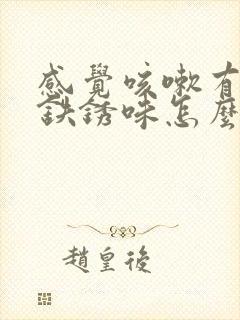 感覺咳嗽有
鉄銹味怎麼
趙皇後